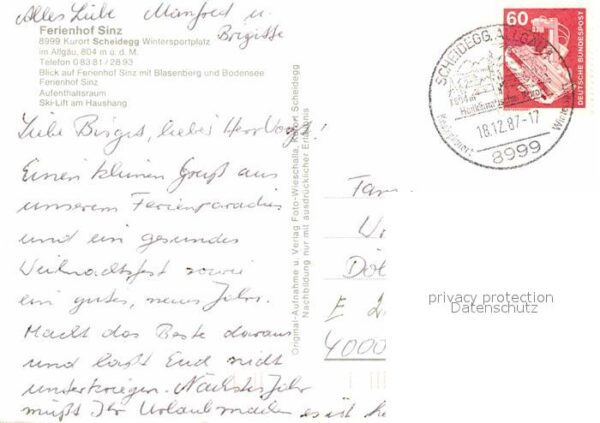 Alles Liebe Manfred u.
Brigitte
Ferienhof Sinz
8999 Kurort Scheidegg Wintersportplatz
im Allgäu, 804 m ü. d. M.
Telefon 0 83 81 / 28 93
Blick auf Ferienhof Sinz mit Blasenberg und Bodensee
Ferienhof Sinz
Aufenthaltsraum
Ski-Lift am Haushang
Liebe Birgit, lieber Herr Voigt!
Einen kleinen Gruß aus
unserem Ferienparadies
und ein gesundes
Weihnachtsfest sowie
ein gutes, neues Jahr.
Macht das Beste daraus
und laßt Euch nicht
unterkriegen. Nächstes Jahr
müßt Ihr Urlaub machen es ist
Original-Aufnahme u. Verlag Foto-Wieschalla, Kurort Scheidegg
Nachbildung nur mit ausdrücklicher Erlaubnis
60
DEUTSCHE BUNDESPOST
SCHEIDEGG, ALLGÄU
Heilklimatischer Kurort
18.12.87-17
8999
Fam
Döt
4000
privacy protection
Datenschutz